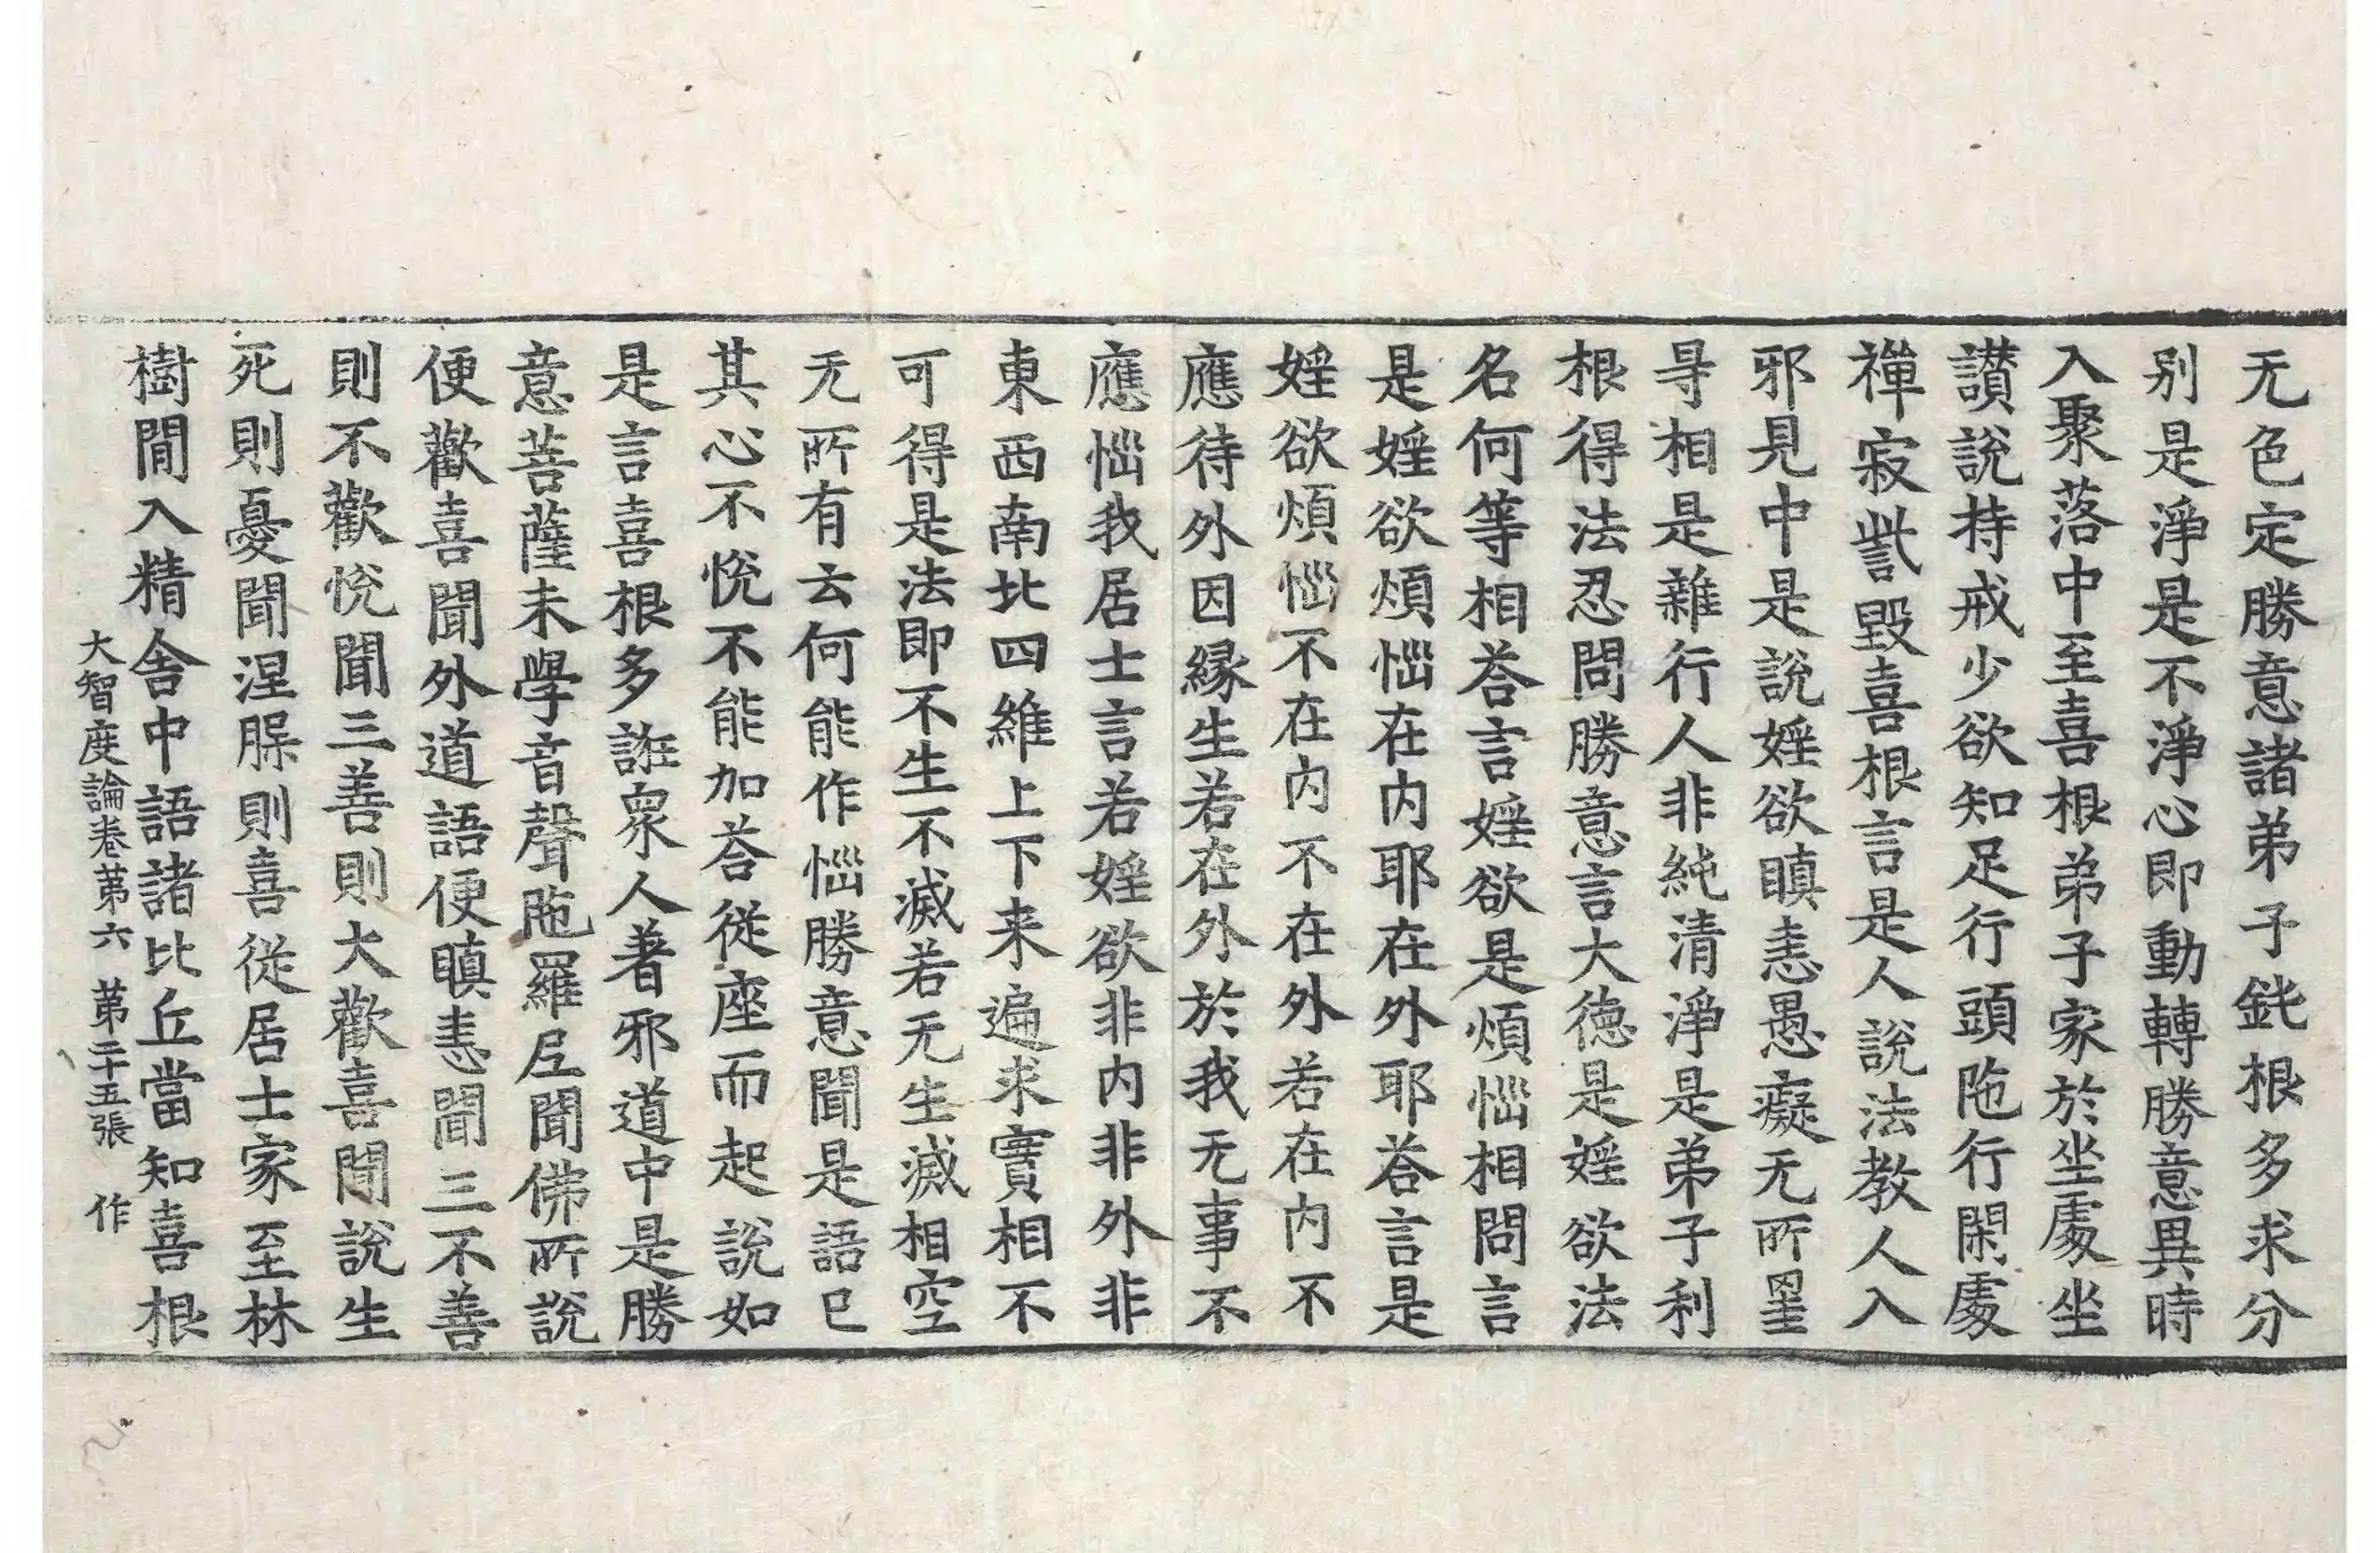 无色定勝意諸弟子鈍根多求分
別是淨是不淨心即動轉勝意異時
入聚落中至喜根弟子家於坐處坐
讃說持戒少欲知足行頭陁行閑處
禪寂訾毀喜根言是人說法教人入
邪見中是說婬欲瞋恚愚癡无所罣
㝵相是雜行人非純清淨是弟子利
根得法忍問勝意言大德是婬欲法
名何等相荅言婬欲是煩惱相問言
是婬欲煩惱在内耶在外耶荅言是
婬欲煩惱不在内不在外若在内不
應待外因縁生若在外於我无事不
應惱我居士言若婬欲非内非外非
東西南北四維上下来遍求實相不
可得是法即不生不滅若无生滅相空
无所有云何能作惱勝意聞是語已
其心不悅不能加荅從座而起說如
是言喜根多誑衆人著邪道中是勝
意菩薩未學音聲陁羅尼聞佛所說
便歡喜聞外道語便瞋恚聞三不善
則不歡悅聞三善則大歡喜聞說生
死則憂聞涅槃則喜從居士家至林
樹間入精舍中語諸比丘當知喜根
大智度論卷第六 第二十五張 作